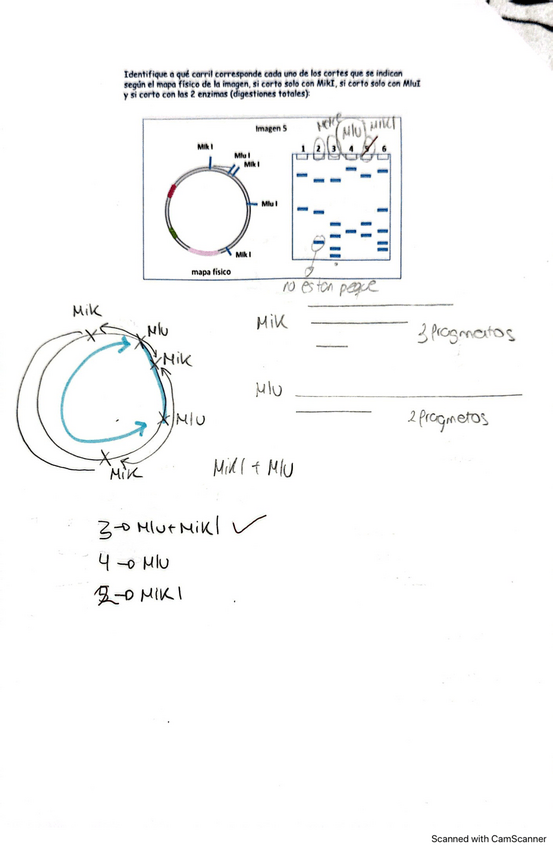 Identifique a qué carril corresponde cada uno de los cortes que se indican
según el mapa físico de la imagen, si corto solo con MikI, si corto solo con MluI
y si corto con las 2 enzimas (digestiones totales):
Imagen 5
Mlu MikI
1 2 3 4 5 6
Mik I
Mlu I
Mik I
Mlu I
Mik I
mapa físico
no estan peque
Mik
3 fragmentos
Mlu
2 fragmetos
Mik
Mlu
Mik
Mlu
Mik
MikI + Mlu
3 → Mlu + MikI ✓
4 → Mlu
→ MikI
Scanned with CamScanner